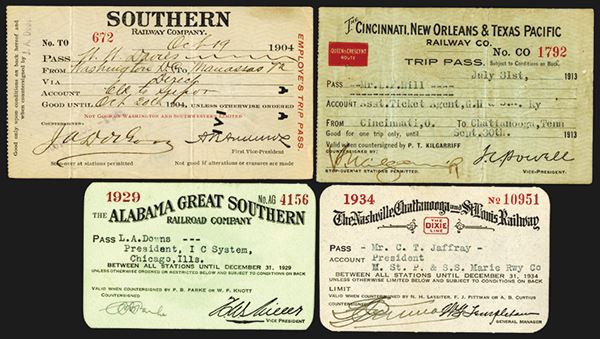 SOUTHERN
RAILWAY COMPANY.
No. TO 672
Oct 19 1904
PASS
FROM Washington DC TO Manassas Va
VIA Direct
ACCOUNT
GOOD UNTIL Oct 20th 1904 UNLESS OTHERWISE ORDERED
NOT GOOD ON WASHINGTON AND SOUTHWESTERN LIMITED
First Vice-President
Stop-over at stations permitted Not good if alterations or erasures are made
EMPLOYE'S TRIP PASS.
Good only upon conditions on back hereof and
when countersigned by
The CINCINNATI, NEW ORLEANS & TEXAS PACIFIC
RAILWAY CO.
QUEEN & CRESCENT
ROUTE
No. CO 1792
TRIP PASS. Subject to Conditions on Back.
July 31st, 1913
PASS ---Mr. Hill---
ACCOUNT Asst. Ticket Agent, Ry
FROM Cincinnati, O. TO Chattanooga, Tenn
Good for one trip only, until Sept. 30th. 1913
VALID WHEN COUNTERSIGNED BY P. T. KILGARRIFF
COUNTERSIGNED BY:
STOP-OVER AT STATIONS PERMITTED. VICE-PRESIDENT.
1929 No. AG 4156
THE ALABAMA GREAT SOUTHERN
RAILROAD COMPANY
PASS L.A.Downs ---
President, I C System,
Chicago, Ills.
BETWEEN ALL STATIONS UNTIL DECEMBER 31, 1929
UNLESS OTHERWISE ORDERED OR RESTRICTED BELOW AND SUBJECT TO CONDITIONS ON BACK
VALID WHEN COUNTERSIGNED BY P. B. PARKE OR W. F. KNOTT
COUNTERSIGNED
VICE PRESIDENT
1934 No 10951
The Nashville, Chattanooga and St. Louis Railway
THE
DIXIE
LINE
PASS - Mr. C. T. Jaffray -
ACCOUNT President
M. St. P. & S.S. Marie Rwy Co
BETWEEN ALL STATIONS UNTIL DECEMBER 31, 1934
UNLESS OTHERWISE LIMITED BELOW AND SUBJECT TO CONDITIONS ON BACK
LIMIT
VALID WHEN COUNTERSIGNED BY N. H. LASSITER, F. J. PITTMAN OR A. B. CURTIUS
COUNTERSIGNED
GENERAL MANAGER